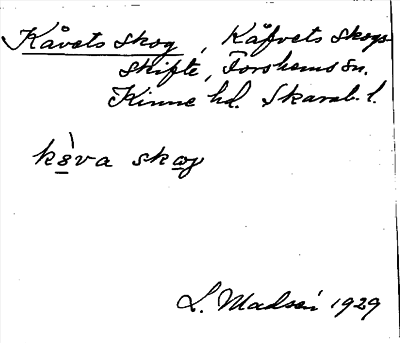 Kåvets skog, Kåfvets skogs-
skifte, Forshems sn.
Kinne hd. Skarab. l.
kòva skog
L. Madsén 1929